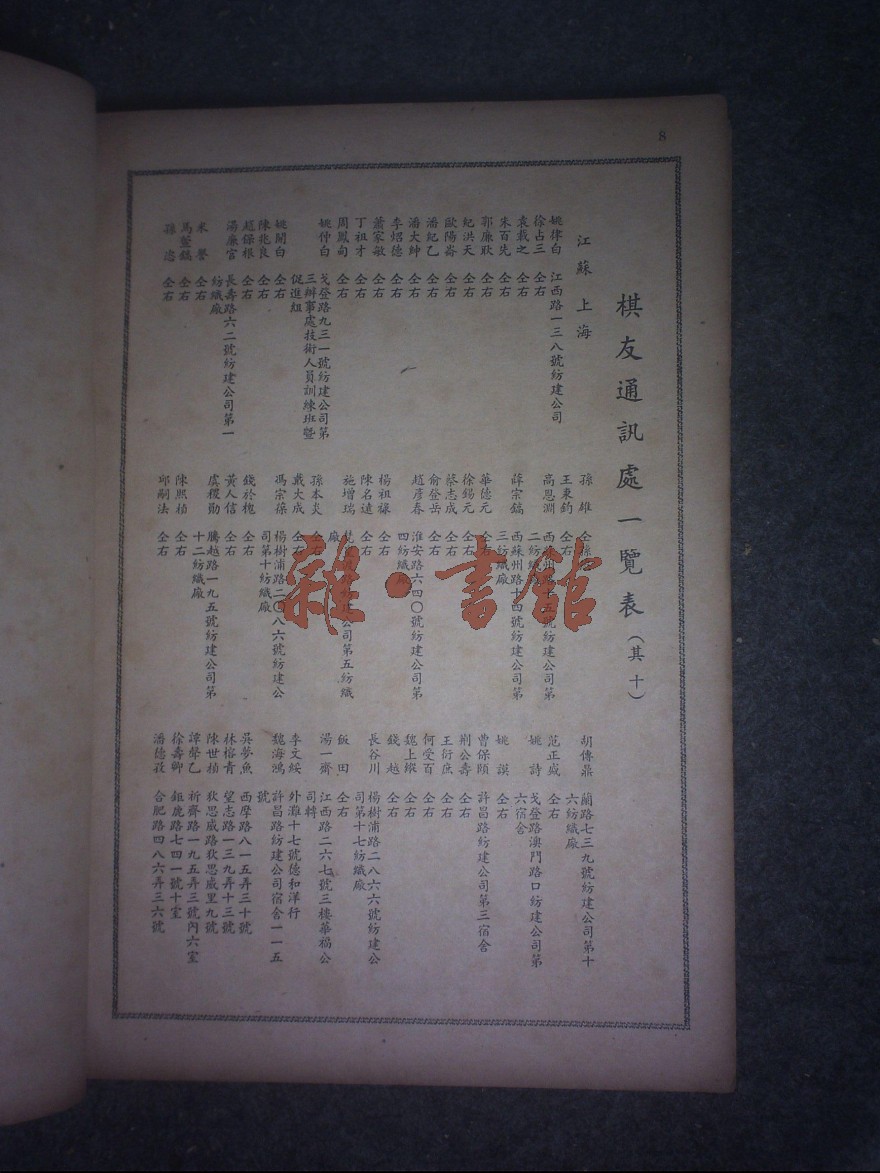 8
棋友通訊處一覽表(其十)
江蘇上海
姚律白 江西路一三八號紡建公司
徐占三 仝右
袁載之 仝右
朱百先 仝右
郭廉耿 仝右
紀洪天 仝右
歐陽崙 仝右
潘紀乙 仝右
潘大紳 仝右
李炤德 仝右
蕭家敏 仝右
丁祖才 仝右
周鳳甸 仝右
姚仲白 戈登路九三一號紡建公司第
三辦事處技術人員訓練班暨
促進組
姚開白 仝右
陳兆良 仝右
趙保根 仝右
湯廉官 長壽路六二號紡建公司第一
紡織廠
米譽 仝右
馬鑑鎬 仝右
孫 仝右
孫雄
王東鈞 仝右
高恩淵 西
二紡
薛宗鎬 西蘇州路十四號紡建公司第
三紡織廠
華德元 仝右
徐錫元 仝右
蔡志成 仝右
俞登岳 仝右
趙彥春 淮安路六四〇號紡建公司第
四紡織
楊祖祿 仝右
陳名遠 仝右
施增瑞 紡建公司第五紡織
廠
孫本炎 仝右
戴大成 仝右
馮宗葆 楊樹浦路二〇八六號紡建公
司第十紡織廠
錢於槐 仝右
黃人信 仝右
虞稷勛 騰越路一九五號紡建公司第
十二紡織廠
陳熙楨 仝右
邱嗣法 仝右
胡傳鼎 蘭路七三九號紡建公司第十
六紡織廠
范正盛 仝右
姚詩 戈登路澳門路口紡建公司第
六宿舍
姚謨 仝右
曹保頤 許昌路紡建公司第三宿舍
荊公壽 仝右
王衍庶 仝右
何受百 仝右
魏上 仝右
錢越 仝右
長谷川 楊樹浦路二八六六號紡建公
司第十七紡織廠
飯田 仝右
湯一齊 江西路二六七號三樓華福公
司轉
李文綏 外灘十七號德和洋行
魏海鴻 許昌路紡建公司宿舍一一五
號
吳夢魚 西摩路八一五弄三十號
林榕青 望志路一三九弄十三號
陳世楨 狄思威路狄思威里九號
譚聲乙 祈齊路一九五弄三號內六室
徐壽卿 鉅鹿路七四一號十室
潘德孜 合肥路四八六弄三六號
雜·書館